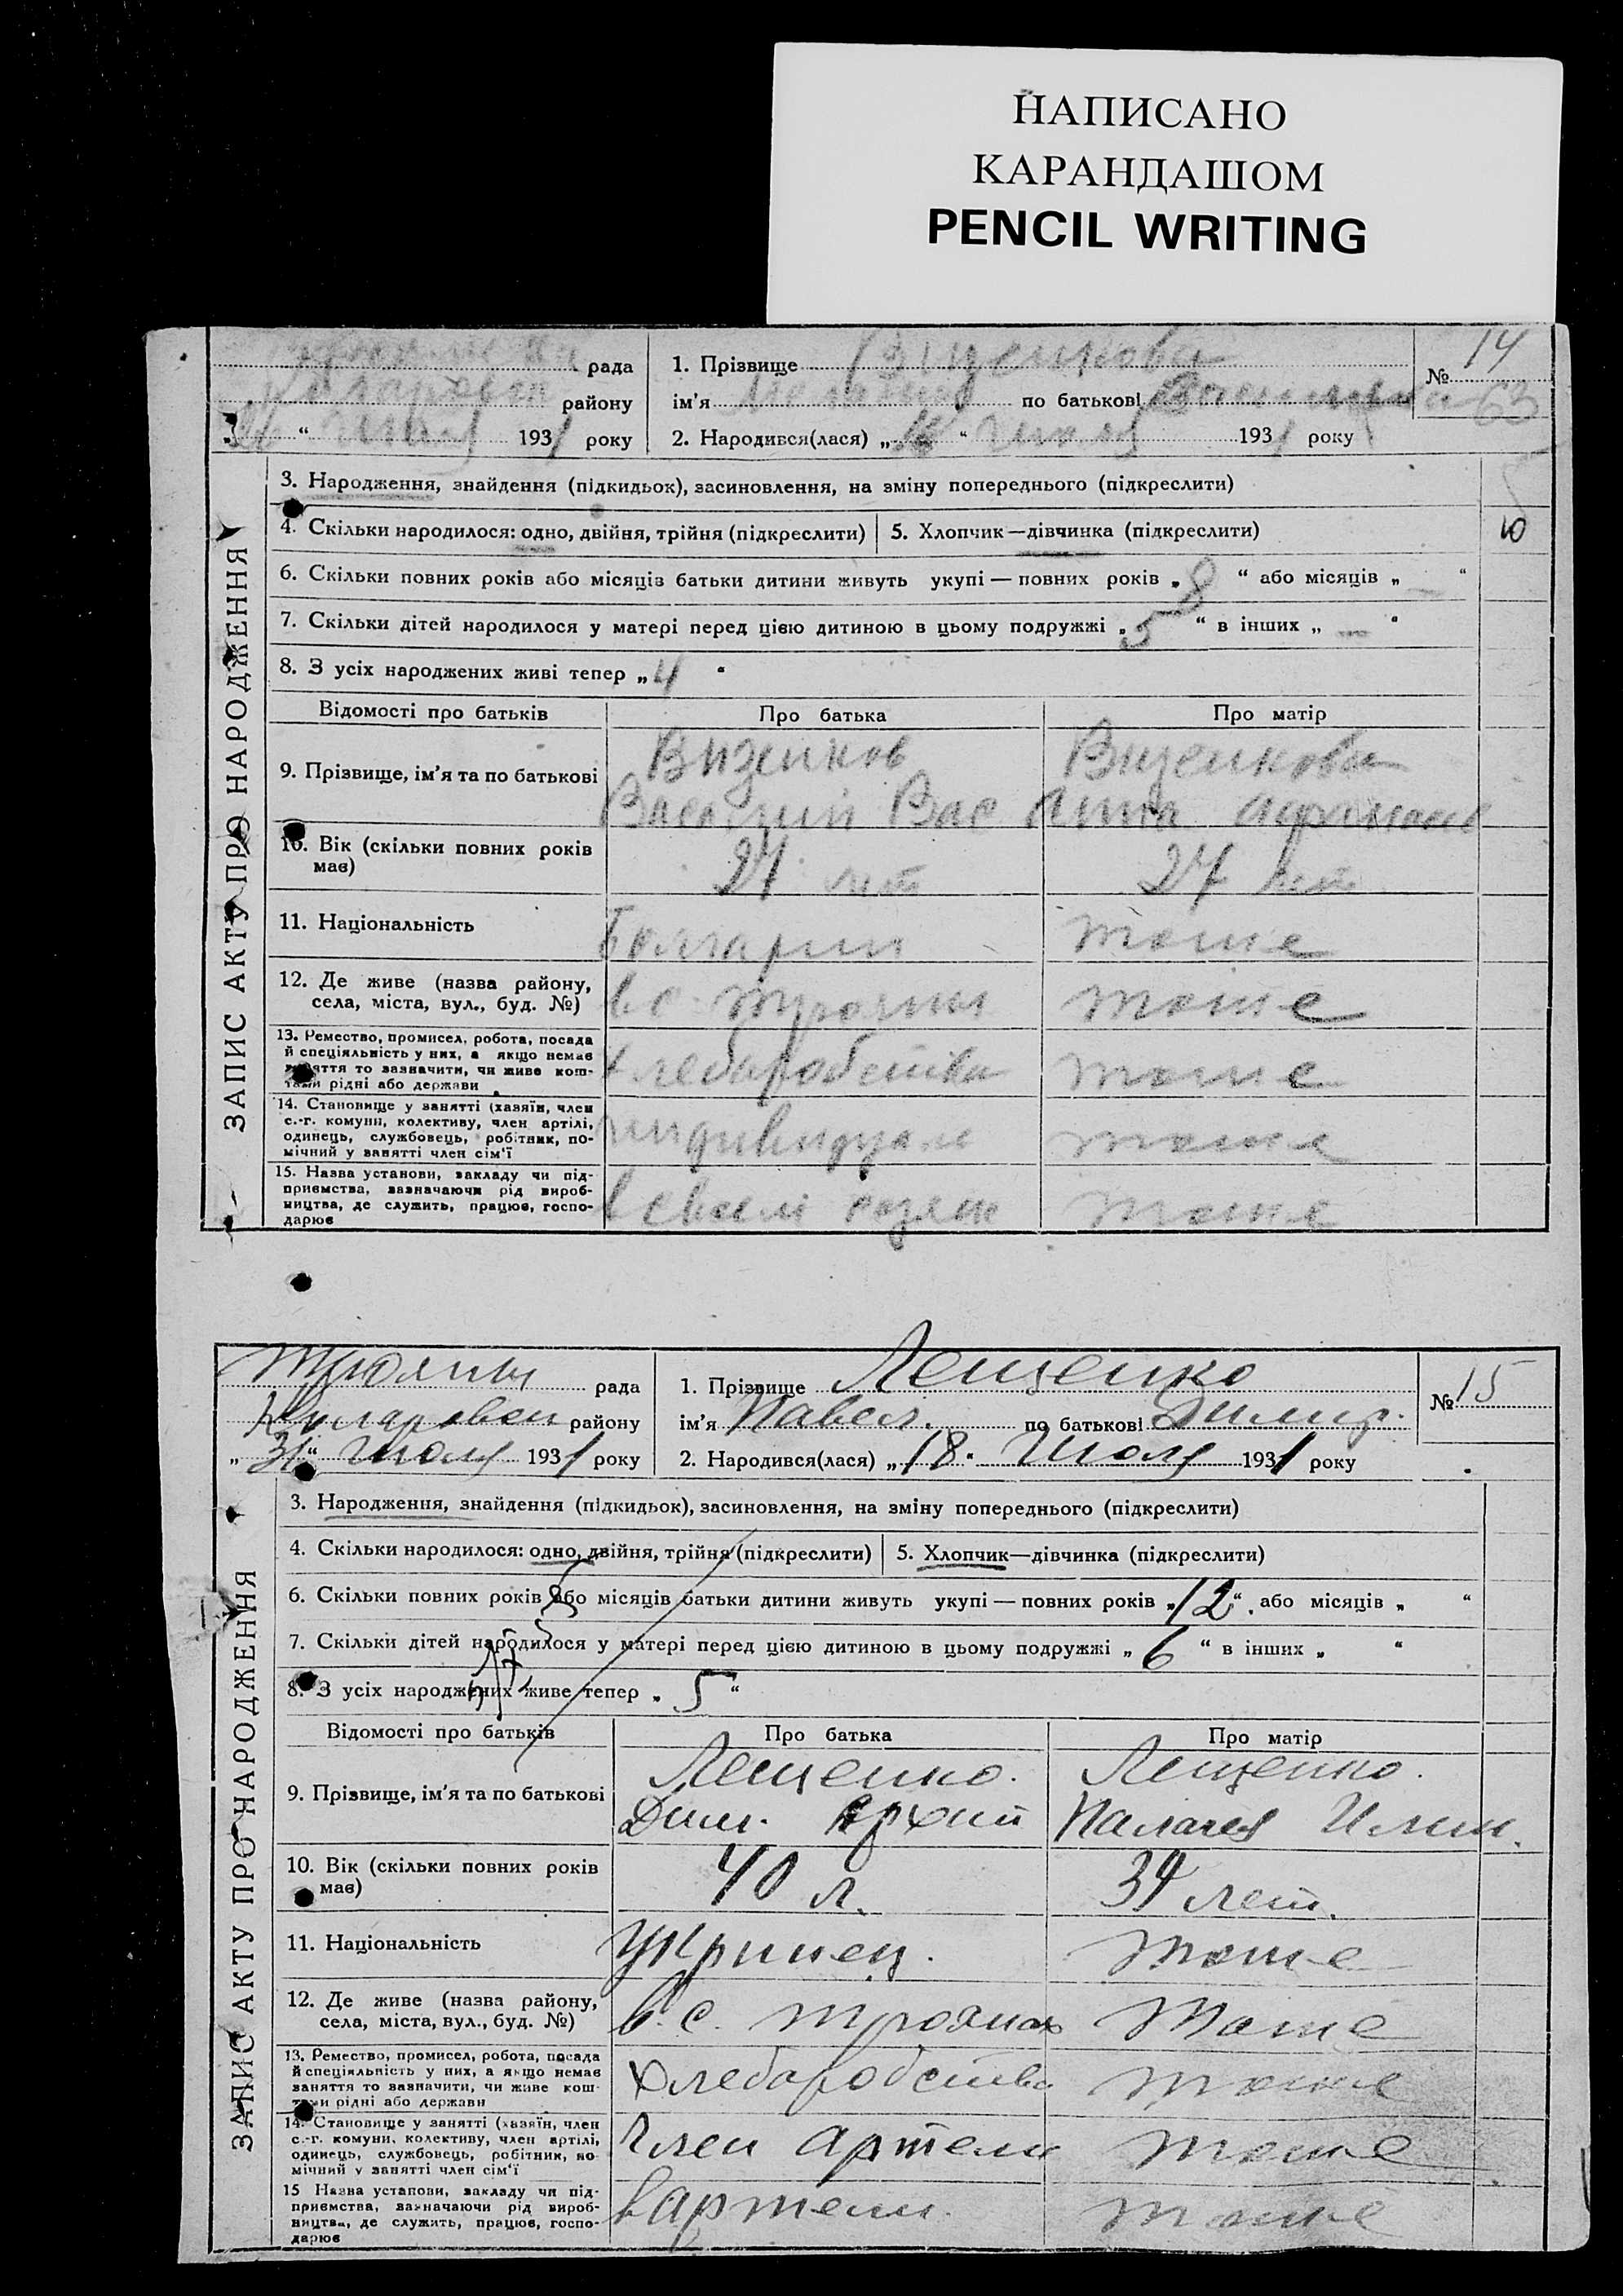 НАПИСАНО
КАРАНДАШОМ
PENCIL WRITING
рада
району
“ Июля 1931 року
1. Прізвище
ім'я по батькові
2. Народився(лася) „ “ Июля 1931 року
№ 14
63
ЗАПИС АКТУ ПРО НАРОДЖЕННЯ
3. Народження, знайдення (підкидьок), засиновлення, на зміну попереднього (підкреслити)
4. Скільки народилося: одно, двійня, трійня (підкреслити) 5. Хлопчик—дівчинка (підкреслити)
ю
6. Скільки повних років або місяців батьки дитини живуть укупі — повних років „ 8 “ або місяців „ — “
7. Скільки дітей народилося у матері перед цією дитиною в цьому подружжі „ 5 “ в інших „ — “
8. З усіх народжених живі тепер „ 4 “
Відомості про батьків Про батька Про матір
9. Прізвище, ім'я та по батькові
Визенков
Василий Вас
Визенкова
Анна
10. Вік (скільки повних років
має)
27 лет
27 лет
11. Національність
Болгарин
тоже
12. Де живе (назва району,
села, міста, вул., буд. №)
в с. трояны
тоже
13. Ремество, промисел, робота, посада
й спеціяльність у них, а якщо немає
заняття то зазначити, чи живе кош-
тами рідні або держави
хлебаробства
тоже
14. Становище у занятті (хазяїн, член
с.-г. комуни, колективу, член артілі,
одинець, службовець, робітник, по-
мічний у занятті член сім'ї
индивидуал
тоже
15. Назва установи, закладу чи під-
приємства, зазначаючи рід вироб-
ництва, де служить, працює, госпо-
дарює
в своем хозяй
тоже
Трояны рада
Коларовск району
„ 31 “ Июля 1931 року
1. Прізвище Лещенко
ім'я Павел. по батькові Димит.
2. Народився(лася) „ 18 “ Июля 1931 року
№ 15
ЗАПИС АКТУ ПРО НАРОДЖЕННЯ
3. Народження, знайдення (підкидьок), засиновлення, на зміну попереднього (підкреслити)
4. Скільки народилося: одно, двійня, трійня (підкреслити) 5. Хлопчик—дівчинка (підкреслити)
6. Скільки повних років або місяців батьки дитини живуть укупі — повних років „ 12 “ або місяців „ “
7. Скільки дітей народилося у матері перед цією дитиною в цьому подружжі „ 6 “ в інших „ “
8. З усіх народжених живе тепер „ 5 “
Відомості про батьків Про батька Про матір
9. Прізвище, ім'я та по батькові
Лещенко.
Дим. Архип
Лещенко.
Палагея Ильин.
10. Вік (скільки повних років
має)
40 л.
34 лет.
11. Національність
Укринец.
тоже
12. Де живе (назва району,
села, міста, вул., буд. №)
в. с. троянах
тоже
13. Ремество, промисел, робота, посада
й спеціяльність у них, а якщо немає
заняття то зазначити, чи живе кош-
тами рідні або держави
Хлебаробства
тоже
14. Становище у занятті (хазяїн, член
с.-г. комуни, колективу, член артілі,
одинець, службовець, робітник, по-
мічний у занятті член сім'ї
Член Артели
тоже
15 Назва установи, закладу чи під-
приємства, зазначаючи рід вироб-
ництва, де служить, працює, госпо-
дарює
в Артели.
тоже